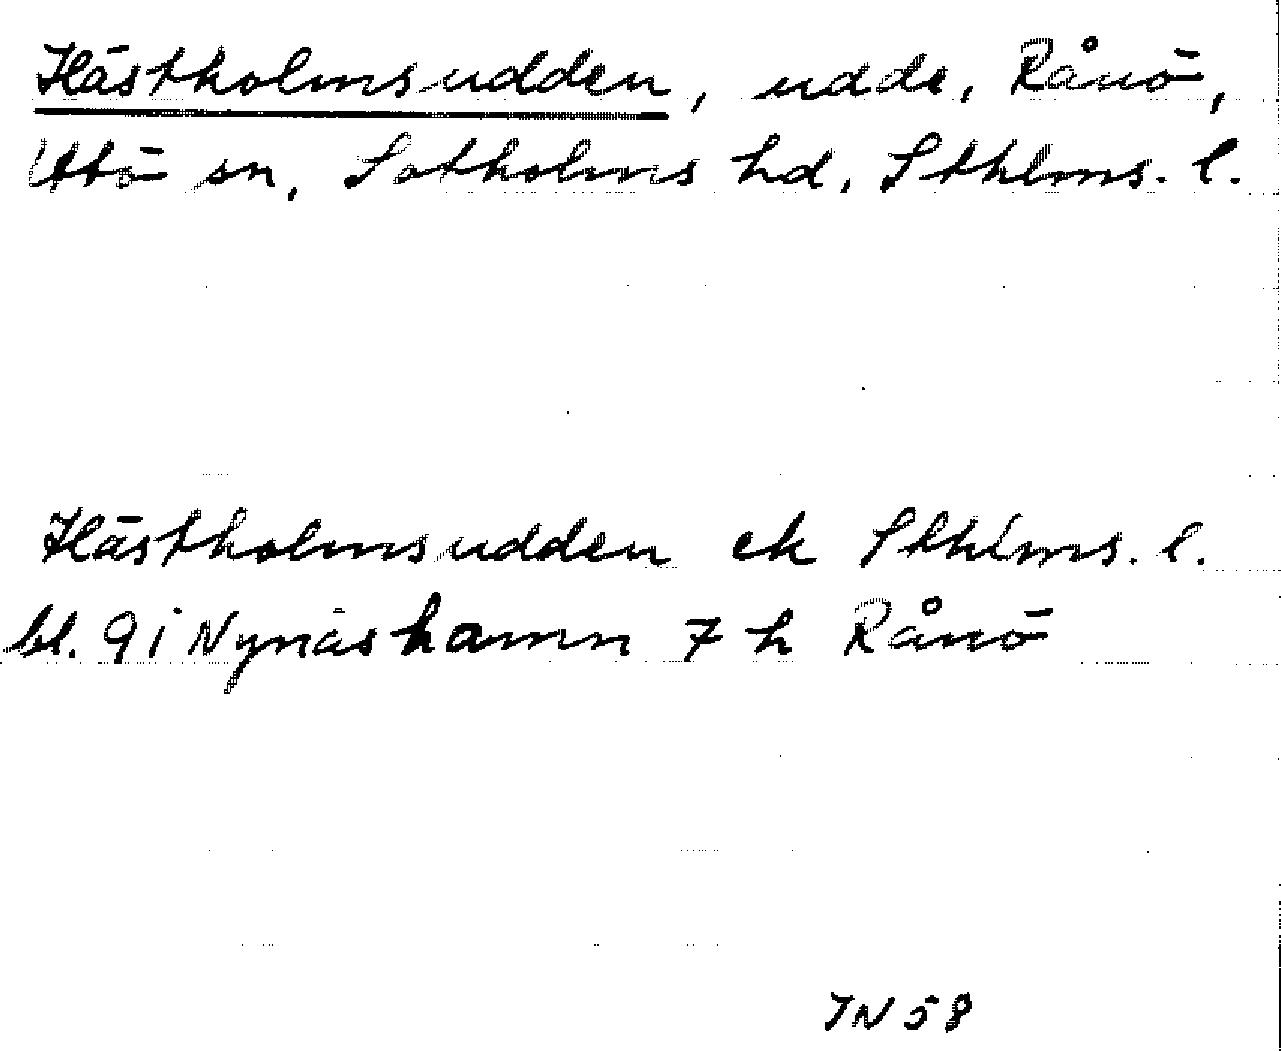 Hästholmsudden, udde, Rånö,
Utö sn, Sotholms hd, Sthlms. l.
Hästholmsudden ek Sthlms. l.
bl. 9 i Nynäshamn 7 h Rånö
JN 58